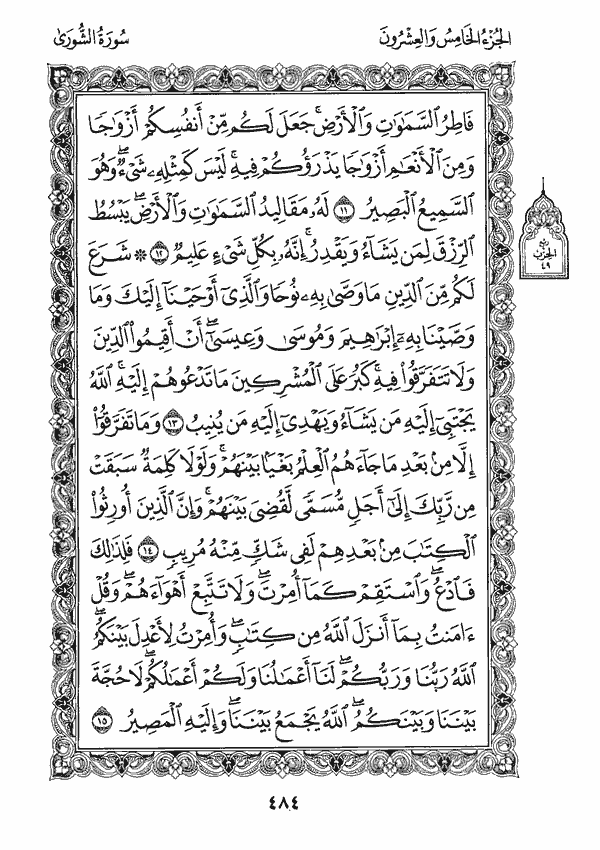 الجُزْءُ الخَامِسُ وَالعِشْرُونَ
سُورَةُ الشُّورَىٰ
فَاطِرُ ٱلسَّمَٰوَٰتِ وَٱلْأَرْضِۚ جَعَلَ لَكُم مِّنْ أَنفُسِكُمْ أَزْوَٰجًا
وَمِنَ ٱلْأَنْعَٰمِ أَزْوَٰجًا يَذْرَؤُكُمْ فِيهِۚ لَيْسَ كَمِثْلِهِۦ شَىْءٌۖ وَهُوَ
ٱلسَّمِيعُ ٱلْبَصِيرُ ١١ لَهُۥ مَقَالِيدُ ٱلسَّمَٰوَٰتِ وَٱلْأَرْضِۖ يَبْسُطُ
ٱلرِّزْقَ لِمَن يَشَآءُ وَيَقْدِرُۚ إِنَّهُۥ بِكُلِّ شَىْءٍ عَلِيمٌ ١٢ ۞ شَرَعَ
لَكُم مِّنَ ٱلدِّينِ مَا وَصَّىٰ بِهِۦ نُوحًا وَٱلَّذِىٓ أَوْحَيْنَآ إِلَيْكَ وَمَا
وَصَّيْنَا بِهِۦٓ إِبْرَٰهِيمَ وَمُوسَىٰ وَعِيسَىٰٓۖ أَنْ أَقِيمُوا۟ ٱلدِّينَ
وَلَا تَتَفَرَّقُوا۟ فِيهِۚ كَبُرَ عَلَى ٱلْمُشْرِكِينَ مَا تَدْعُوهُمْ إِلَيْهِۚ ٱللَّهُ
يَجْتَبِىٓ إِلَيْهِ مَن يَشَآءُ وَيَهْدِىٓ إِلَيْهِ مَن يُنِيبُ ١٣ وَمَا تَفَرَّقُوٓا۟
إِلَّا مِنۢ بَعْدِ مَا جَآءَهُمُ ٱلْعِلْمُ بَغْيًۢا بَيْنَهُمْۚ وَلَوْلَا كَلِمَةٌ سَبَقَتْ
مِن رَّبِّكَ إِلَىٰٓ أَجَلٍ مُّسَمًّى لَّقُضِىَ بَيْنَهُمْۚ وَإِنَّ ٱلَّذِينَ أُورِثُوا۟
ٱلْكِتَٰبَ مِنۢ بَعْدِهِمْ لَفِى شَكٍّ مِّنْهُ مُرِيبٍ ١٤ فَلِذَٰلِكَ
فَٱدْعُۖ وَٱسْتَقِمْ كَمَآ أُمِرْتَۖ وَلَا تَتَّبِعْ أَهْوَآءَهُمْۖ وَقُلْ
ءَامَنتُ بِمَآ أَنزَلَ ٱللَّهُ مِن كِتَٰبٍۖ وَأُمِرْتُ لِأَعْدِلَ بَيْنَكُمُۖ
ٱللَّهُ رَبُّنَا وَرَبُّكُمْۖ لَنَآ أَعْمَٰلُنَا وَلَكُمْ أَعْمَٰلُكُمْۖ لَا حُجَّةَ
بَيْنَنَا وَبَيْنَكُمُۖ ٱللَّهُ يَجْمَعُ بَيْنَنَاۖ وَإِلَيْهِ ٱلْمَصِيرُ ١٥
ربع
الحزب
٤٩
٤٨٤